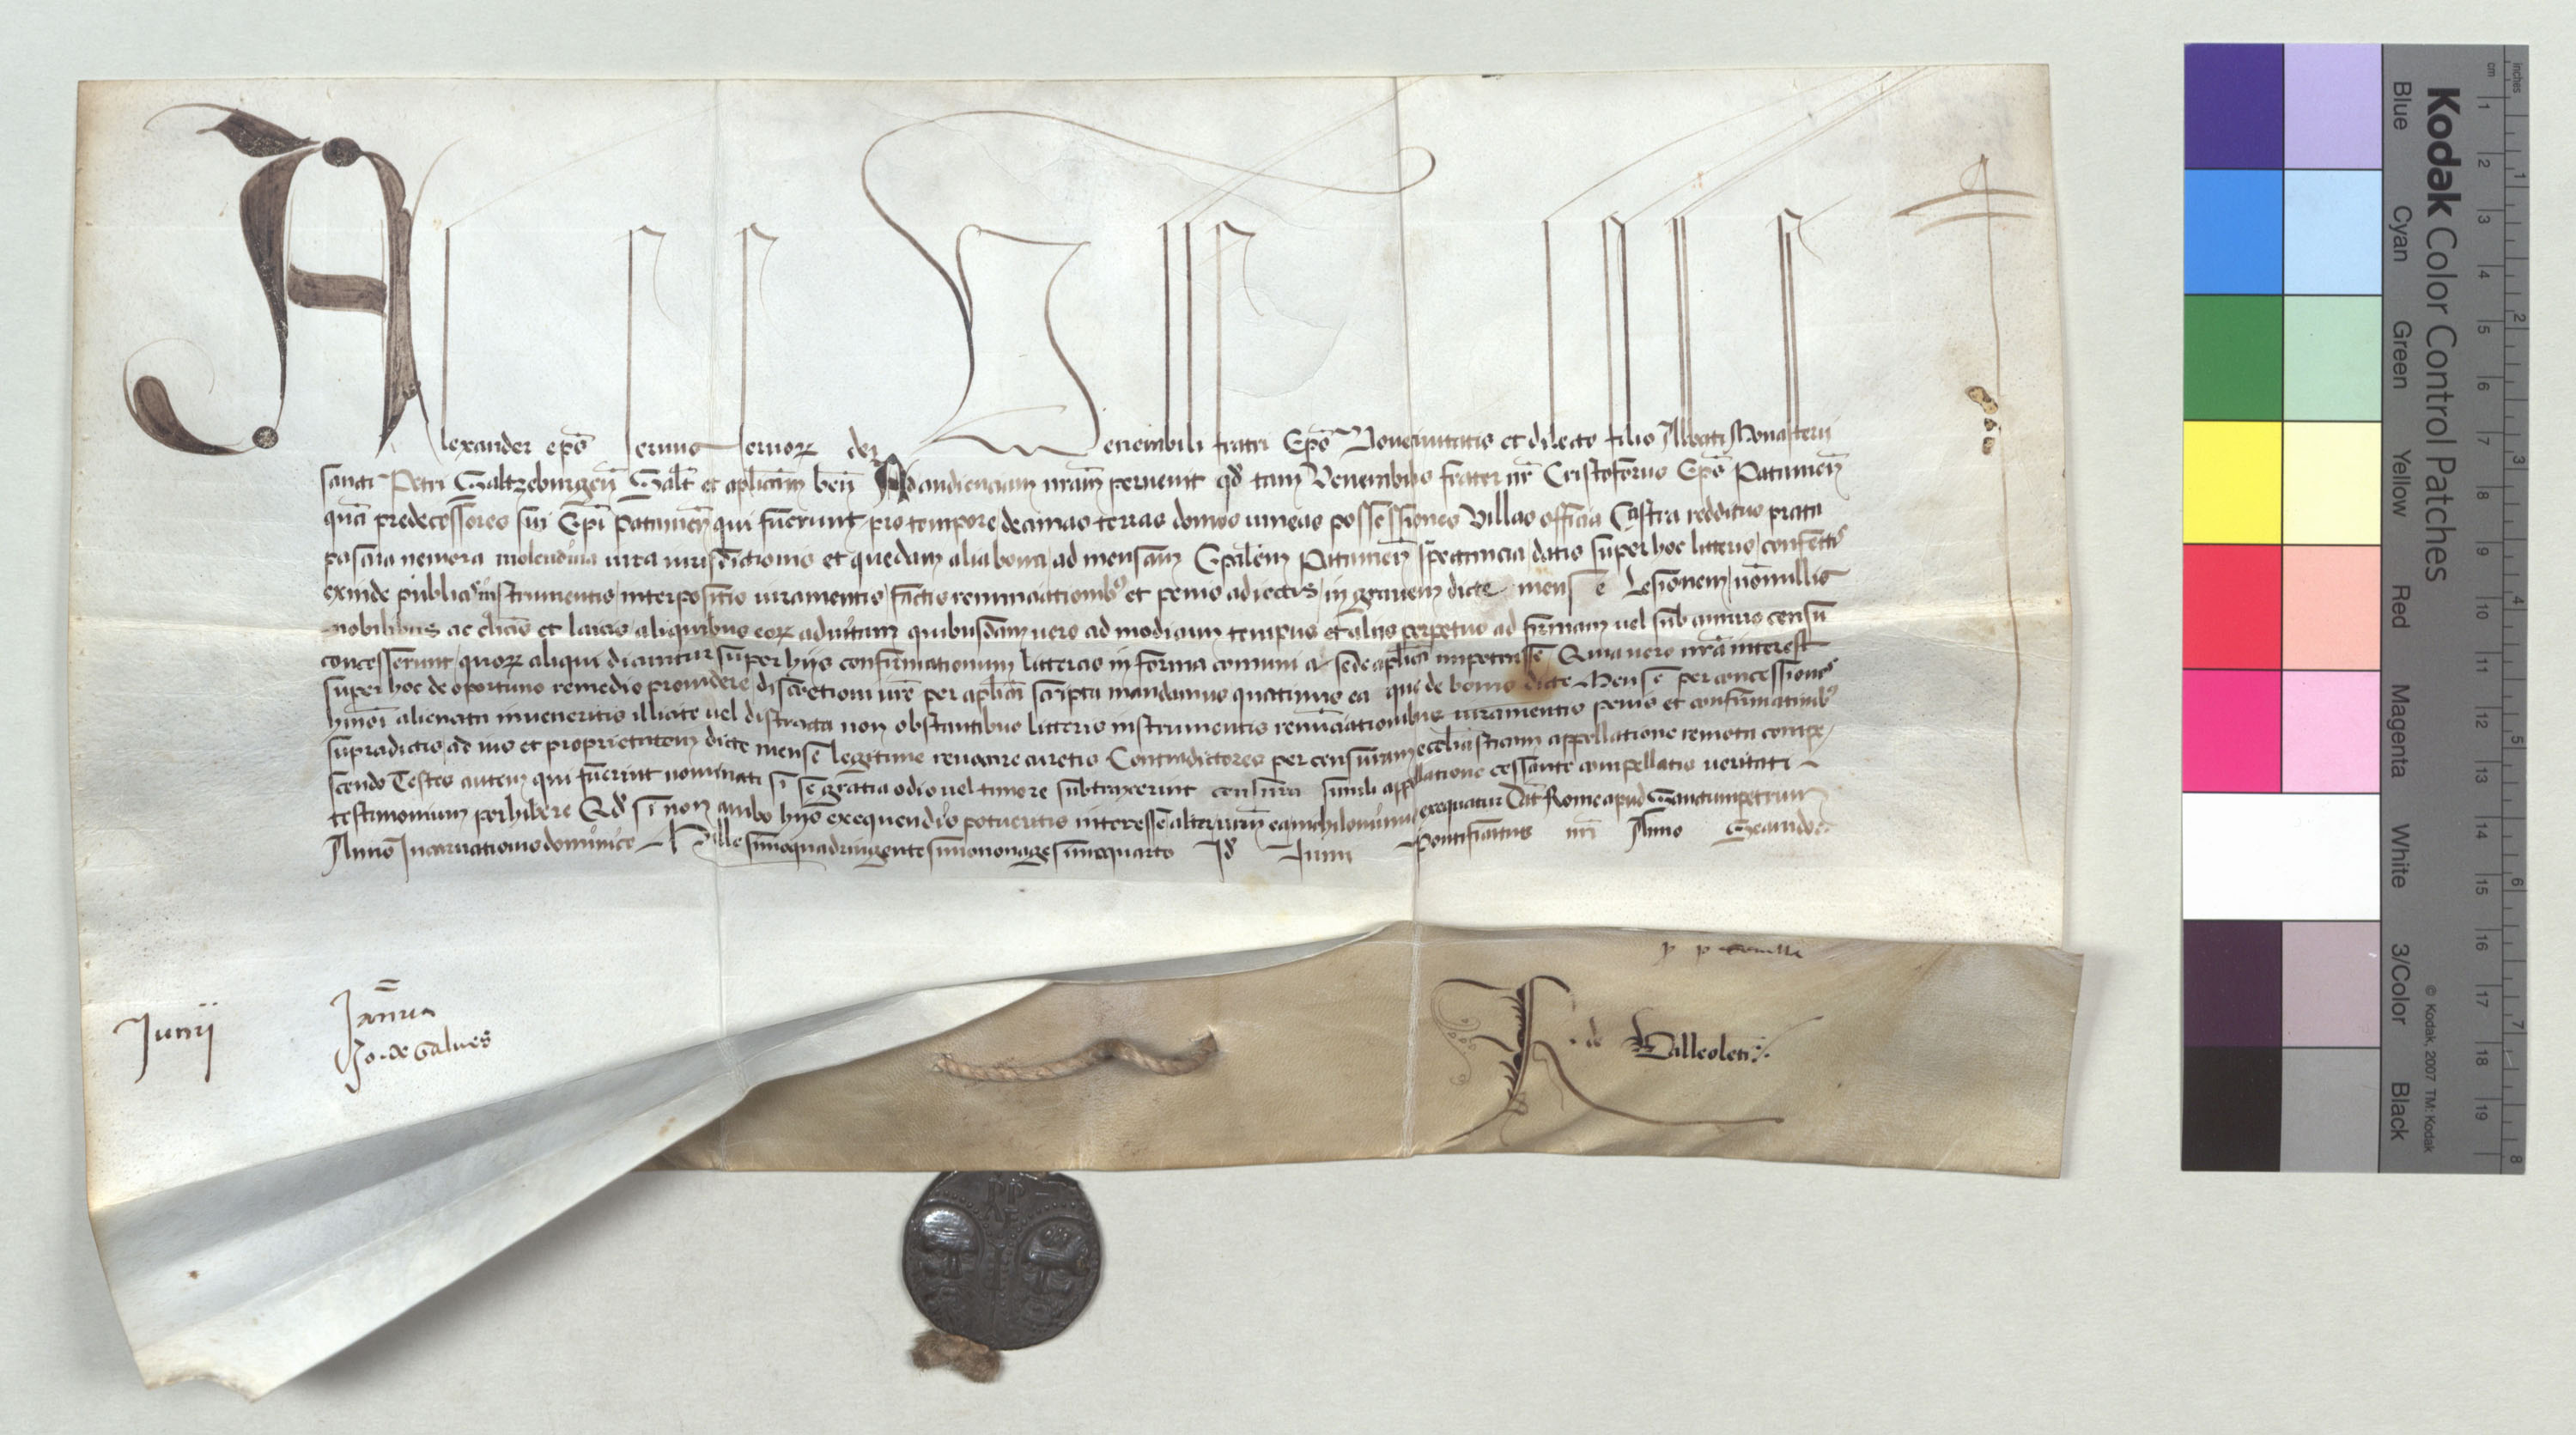 Alexander ep̄s seruus seruorꝝ dei Venerabili fratri Ep̄o Noueciuitatis et dilecto filio Abbati Monasterii
sancti Petri Saltzeburgeñ Salt̄ et ap̄licam beñ Ad audienciam nrām peruenit qđ tam Venerabilis frater nr̄ Cristoforus Ep̄s Patauieñ
quā predecessores sui Ep̄i Patauieñ qui fuerunt pro tempore decimas terras domos vineas possessiones Villas officia Castra redditus prata
pascua nemora molendina iura iurisdictiones et quedam alia bona ad mensam Ep̄alem Patauieñ spectancia datis super hoc litteris confectis
exinde publicis instrumentis interpositis iuramentis factis renunciationibꝰ et penis adiectis in grauem dicte mense Lesionem nōnullis
nobilibus ac cl̄icis et laicis aliquibus eorꝝ ad uitam quibusdam uero ad modicum tempus et aliis perpetuo ad firmam uel sub annuo censu
concesserunt quorꝝ aliqui dicuntur super hiis confirmationum litteras in forma comuni a sede ap̄lica impetrasse Quia uero nrā interest
super hoc de oportuno remedio prouidere discretioni vrē per ap̄lica scripta mandamus quatinus ea que de bonis dicte Mense per concessiones
hmōi alienata inueneritis illicite uel distracta non obstantibus litteris instrumentis renūciationibus iuramentis penis et confirmationibꝰ
supradictis ad ius et proprietatem dicte mense legitime reuocare curetis Contradictores per censuram ecclesiasticam appellatione remota compe/
scendo Testes autem qui fuerint nominati si se gratia odio uel timore subtraxerint censura simili appellatione cessante compellatis ueritati
testimonium perhibere Qđ si non ambo hiis exequendis potueritis interesse alter vrūm ea nichilominus exequatur Dat̄ Rome apud Sanctumpetrum
Anno Incarnationis dominice Millesimoquadringentesimononagesimoquarto Iđ Iunii Pontificatus nr̄i Anno Secundo
p p
Junij
Januar
Jo. de Galues
R. de Valleoleti
PP
Kodak Color Control Patches
Blue Cyan Green Yellow Red Magenta White 3/Color Black
© Kodak, 2007 TM: Kodak
inches 1 2 3 4 5 6 7 8
cm 1 2 3 4 5 6 7 8 9 10 11 12 13 14 15 16 17 18 19